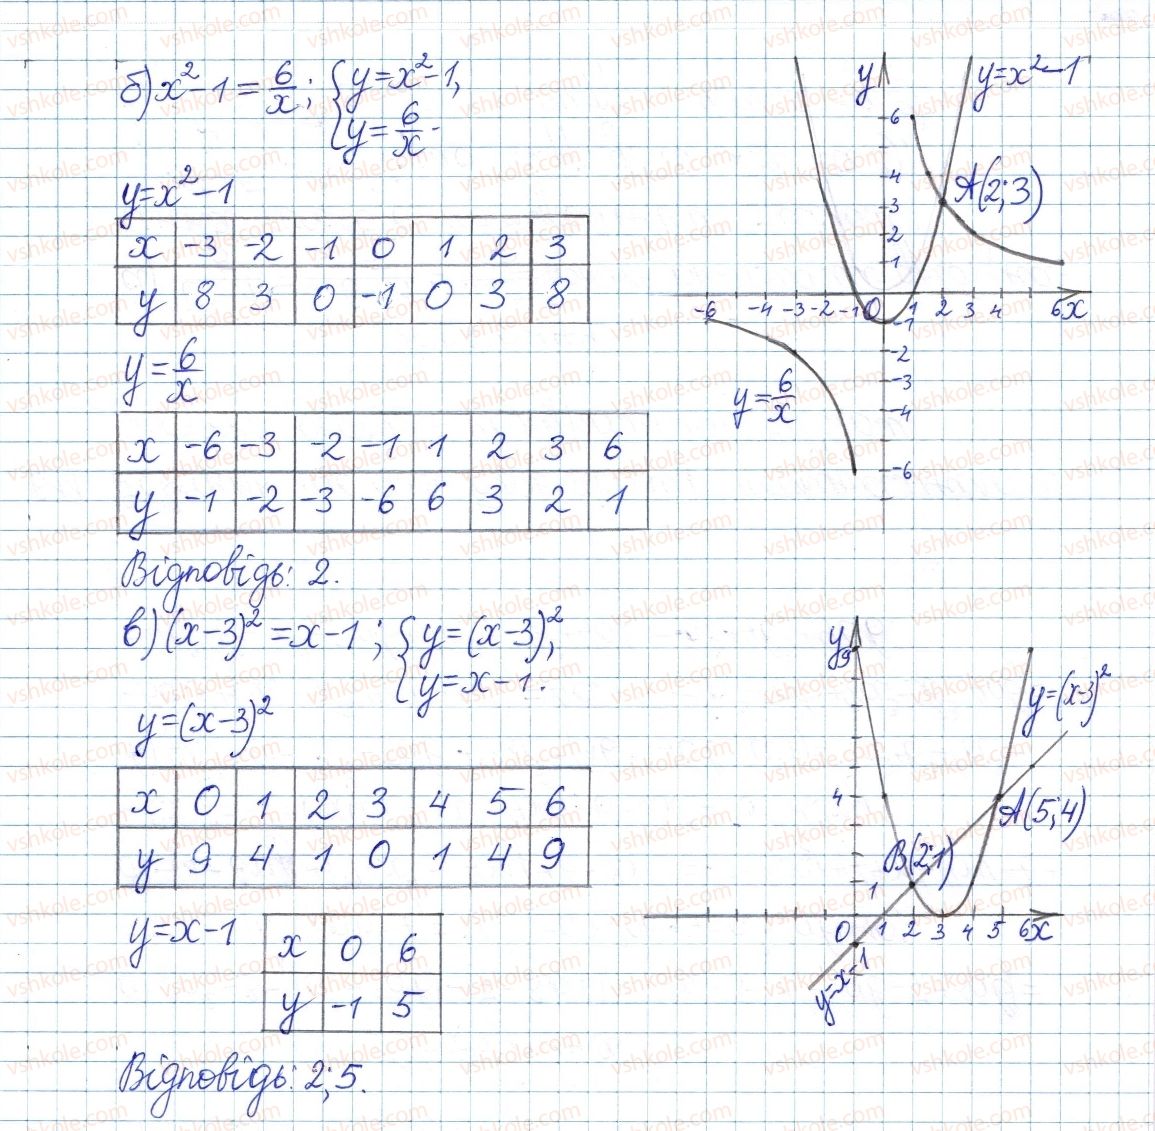 б) x² − 1 = 6/x; { y = x² − 1,
y = 6/x.
y = x² − 1
x −3 −2 −1 0 1 2 3
y 8 3 0 −1 0 3 8
y = 6/x
x −6 −3 −2 −1 1 2 3 6
y −1 −2 −3 −6 6 3 2 1
Відповідь: 2.
y
y = x² − 1
6
4
3
2
1
A(2; 3)
−6 −4 −3 −2 −1 0 1 2 3 4 6 x
−1
−2
−3
−4
−6
y = 6/x
в) (x − 3)² = x − 1; { y = (x − 3)²,
y = x − 1.
y = (x − 3)²
x 0 1 2 3 4 5 6
y 9 4 1 0 1 4 9
y = x − 1
x 0 6
y −1 5
Відповідь: 2; 5.
y
9
y = (x − 3)²
4
A(5; 4)
B(2; 1)
1
0 1 2 3 4 5 6 x
y = x − 1
vshkole.com